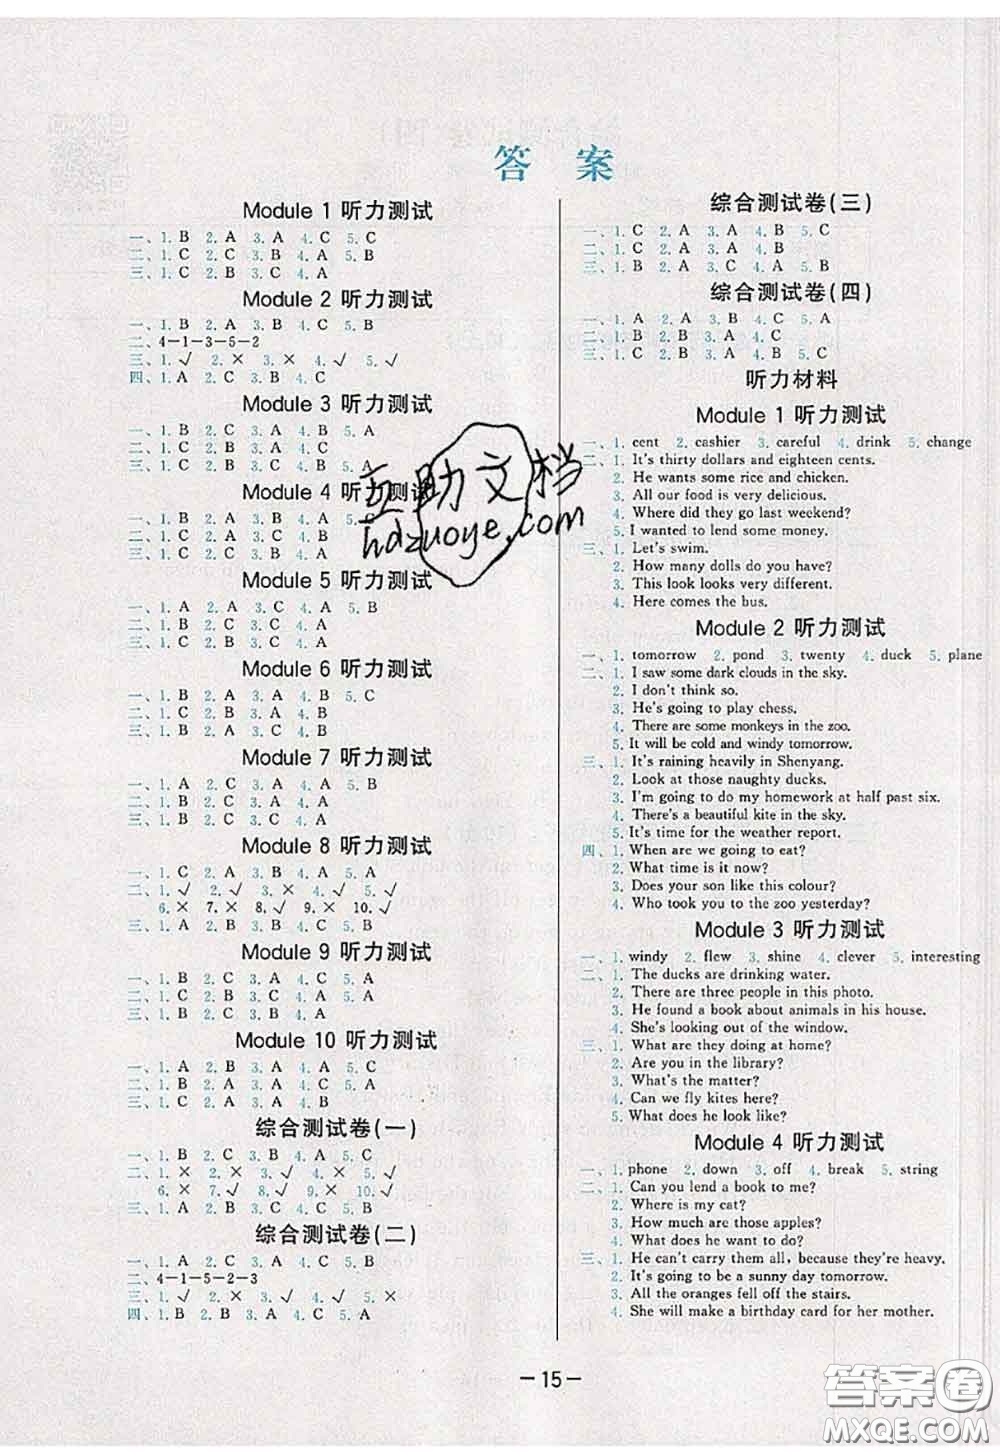 答 案
Module 1 听力测试
一、1. B 2. A 3. A 4. C 5. C
二、1. C 2. C 3. B 4. A 5. B
三、1. C 2. B 3. C 4. A
Module 2 听力测试
一、1. B 2. A 3. B 4. C 5. B
二、4-1-3-5-2
三、1. √ 2. × 3. × 4. √ 5. √
四、1. A 2. C 3. B 4. C
Module 3 听力测试
一、1. B 2. C 3. A 4. B 5. A
二、1. C 2. B 3. A 4. C
三、1. C 2. C 3. B 4. B 5. A
Module 4 听力测试
一、1. B 2. A 3. B 4. A 5.
二、1. C 2. A 3. C 4. B
三、1. C 2. B 3. C 4. A
Module 5 听力测试
一、1. A 2. A 3. C 4. A 5. B
二、1. B 2. C 3. C 4. A
三、1. C 2. B 3. C 4. A
Module 6 听力测试
一、1. B 2. A 3. A 4. B 5. C
二、1. C 2. B 3. A 4. B
三、1. B 2. A 3. C 4. B
Module 7 听力测试
一、1. A 2. C 3. A 4. A 5. B
二、1. B 2. C 3. A 4. A
三、1. B 2. C 3. C 4. A
Module 8 听力测试
一、1. C 2. A 3. B 4. A 5. A
二、1. √ 2. √ 3. × 4. √ 5. √
6. × 7. × 8. √ 9. × 10. √
三、1. A 2. B 3. B 4. C 5. A
Module 9 听力测试
一、1. B 2. C 3. A 4. C 5. A
二、1. C 2. B 3. C 4. A 5. A
三、1. C 2. B 3. B 4. A
Module 10 听力测试
一、1. A 2. B 3. A 4. A 5. C
二、1. B 2. A 3. A 4. C 5. A
三、1. C 2. A 3. A 4. B
综合测试卷(一)
一、1. B 2. C 3. B 4. A 5. C
二、1. × 2. × 3. √ 4. × 5. √
6. × 7. √ 8. √ 9. × 10. √
三、1. A 2. B 3. C 4. C 5. B
综合测试卷(二)
一、1. A 2. C 3. A 4. C 5. B
二、4-1-5-2-3
三、1. √ 2. × 3. √ 4. √ 5. ×
四、1. B 2. B 3. A 4. C 5. A
综合测试卷(三)
一、1. C 2. A 3. A 4. B 5. C
二、1. C 2. A 3. A 4. B
三、1. B 2. A 3. C 4. A 5. B
综合测试卷(四)
一、1. A 2. A 3. B 4. C 5. A
二、1. B 2. B 3. A 4. C
三、1. C 2. B 3. A 4. B
听力材料
Module 1 听力测试
一、1. cent 2. cashier 3. careful 4. drink 5. change
二、1. It's thirty dollars and eighteen cents.
2. He wants some rice and chicken.
3. All our food is very delicious.
4. Where did they go last weekend?
5. I wanted to lend some money.
三、1. Let's swim.
2. How many dolls do you have?
3. This look looks very different.
4. Here comes the bus.
Module 2 听力测试
一、1. tomorrow 2. pond 3. twenty 4. duck 5. plane
二、1. I saw some dark clouds in the sky.
2. I don't think so.
3. He's going to play chess.
4. There are some monkeys in the zoo.
5. It will be cold and windy tomorrow.
三、1. It's raining heavily in Shenyang.
2. Look at those naughty ducks.
3. I'm going to do my homework at half past six.
4. There's a beautiful kite in the sky.
5. It's time for the weather report.
四、1. When are we going to eat?
2. What time is it now?
3. Does your son like this colour?
4. Who took you to the zoo yesterday?
Module 3 听力测试
一、1. windy 2. flew 3. shine 4. clever 5. interesting
二、1. The ducks are drinking water.
2. There are three people in this photo.
3. He found a book about animals in his house.
4. She's looking out of the window.
三、1. What are they doing at home?
2. Are you in the library?
3. What's the matter?
4. Can we fly kites here?
5. What does he look like?
Module 4 听力测试
一、1. phone 2. down 3. off 4. break 5. string
二、1. Can you lend a book to me?
2. Where is my cat?
3. How much are those apples?
4. What does he want to do?
三、1. He can't carry them all, because they're heavy.
2. It's going to be a sunny day tomorrow.
3. All the oranges fell off the stairs.
4. She will make a birthday card for her mother.
互助文档
hdzuoye.com
— 15 —
答案卷
MXQE.COM